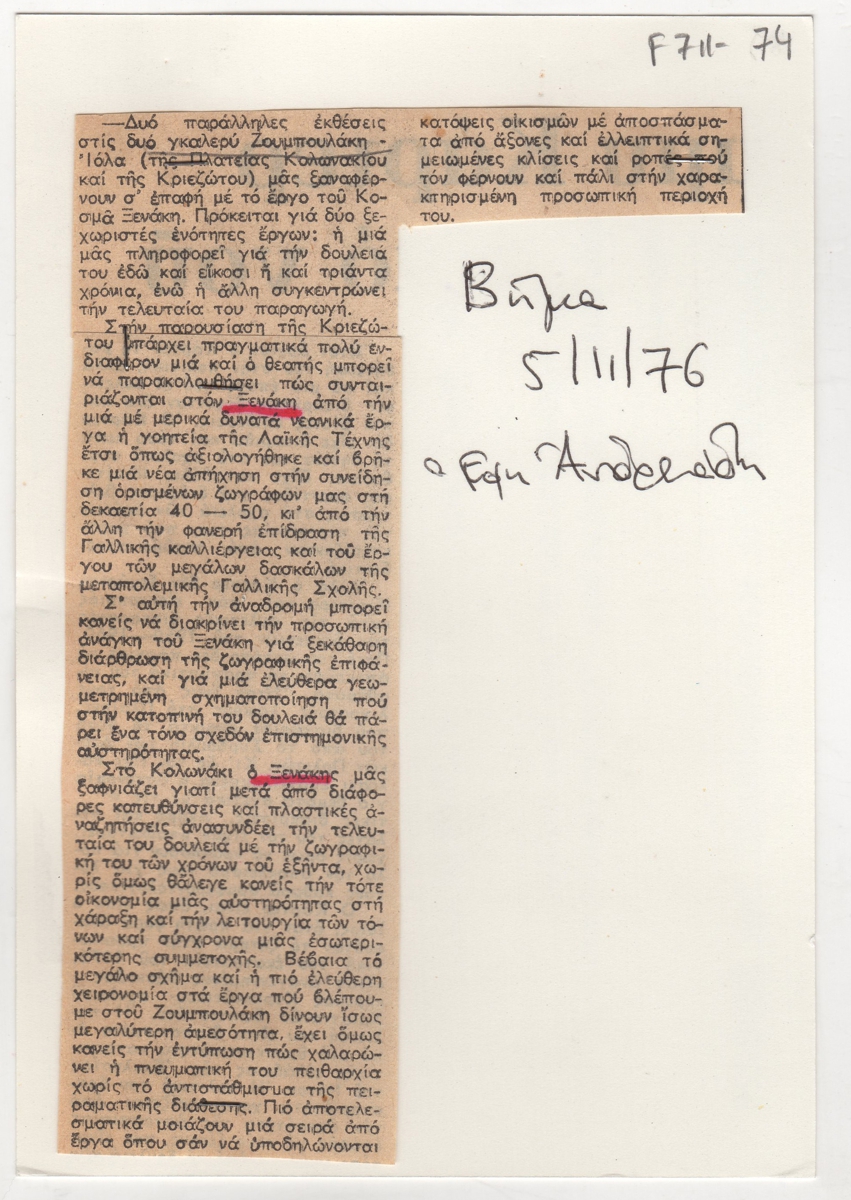 F711- 74
—Δυό παράλληλες ἐκθέσεις
στίς δυό γκαλερύ Ζουμπουλάκη -
'Ιόλα (τῆς Πλατείας Κολωνακίου
καί τῆς Κριεζώτου) μᾶς ξαναφέρ-
νουν σ' ἐπαφή μέ τό ἔργο τοῦ Κο-
σμᾶ Ξενάκη. Πρόκειται γιά δύο ξε-
χωριστές ἑνότητες ἔργων: ἡ μιά
μᾶς πληροφορεῖ γιά τήν δουλειά
του ἐδῶ καί εἴκοσι ἤ καί τριάντα
χρόνια, ἐνῶ ἡ ἄλλη συγκεντρώνει
τήν τελευταία του παραγωγή.
Στήν παρουσίαση τῆς Κριεζώ-
του ὑπάρχει πραγματικά πολύ ἐν-
διαφέρον μιά καί ὁ θεατής μπορεῖ
νά παρακολουθήσει πώς συνται-
ριάζονται στόν Ξενάκη ἀπό τήν
μιά μέ μερικά δυνατά νεανικά ἔρ-
γα ἡ γοητεία τῆς Λαϊκῆς Τέχνης
ἔτσι ὅπως ἀξιολογήθηκε καί βρῆ-
κε μιά νέα ἀπήχηση στήν συνείδη-
ση ὁρισμένων ζωγράφων μας στή
δεκαετία 40 — 50, κι' ἀπό τήν
ἄλλη τήν φανερή ἐπίδραση τῆς
Γαλλικῆς καλλιέργειας καί τοῦ ἔρ-
γου τῶν μεγάλων δασκάλων τῆς
μεταπολεμικῆς Γαλλικῆς Σχολῆς.
Σ' αὐτή τήν ἀναδρομή μπορεῖ
κανείς νά διακρίνει τήν προσωπική
ἀνάγκη τοῦ Ξενάκη γιά ξεκάθαρη
διάρθρωση τῆς ζωγραφικῆς ἐπιφά-
νειας, καί γιά μιά ἐλεύθερα γεω-
μετρημένη σχηματοποίηση πού
στήν κατοπινή του δουλειά θά πά-
ρει ἕνα τόνο σχεδόν ἐπιστημονικῆς
αὐστηρότητας.
Στό Κολωνάκι ὁ Ξενάκης μᾶς
ξαφνιάζει γιατί μετά ἀπό διάφο-
ρες κατευθύνσεις καί πλαστικές ἀ-
ναζητήσεις ἀνασυνδέει τήν τελευ-
ταία του δουλειά μέ τήν ζωγραφι-
κή του τῶν χρόνων τοῦ ἑξῆντα, χω-
ρίς ὅμως θάλεγε κανείς τήν τότε
οἰκονομία μιᾶς αὐστηρότητας στή
χάραξη καί τήν λειτουργία τῶν τό-
νων καί σύγχρονα μιᾶς ἐσωτερι-
κότερης συμμετοχῆς. Βέβαια τό
μεγάλο σχῆμα καί ἡ πιό ἐλεύθερη
χειρονομία στά ἔργα πού βλέπου-
με στοῦ Ζουμπουλάκη δίνουν ἴσως
μεγαλύτερη ἀμεσότητα, ἔχει ὅμως
κανείς τήν ἐντύπωση πώς χαλαρώ-
νει ἡ πνευματική του πειθαρχία
χωρίς τό ἀντιστάθμισμα τῆς πει-
ραματικῆς διάθεσης. Πιό ἀποτελε-
σματικά μοιάζουν μιά σειρά ἀπό
ἔργα ὅπου σάν νά ὑποδηλώνονται
κατόψεις οἰκισμῶν μέ ἀποσπάσμα-
τα ἀπό ἄξονες καί ἐλλειπτικά ση-
μειωμένες κλίσεις καί ροπές πού
τόν φέρνουν καί πάλι στήν χαρα-
κτηρισμένη προσωπική περιοχή
του.
Βῆμα
5/11/76
Εφη Ἀνδρεάδη